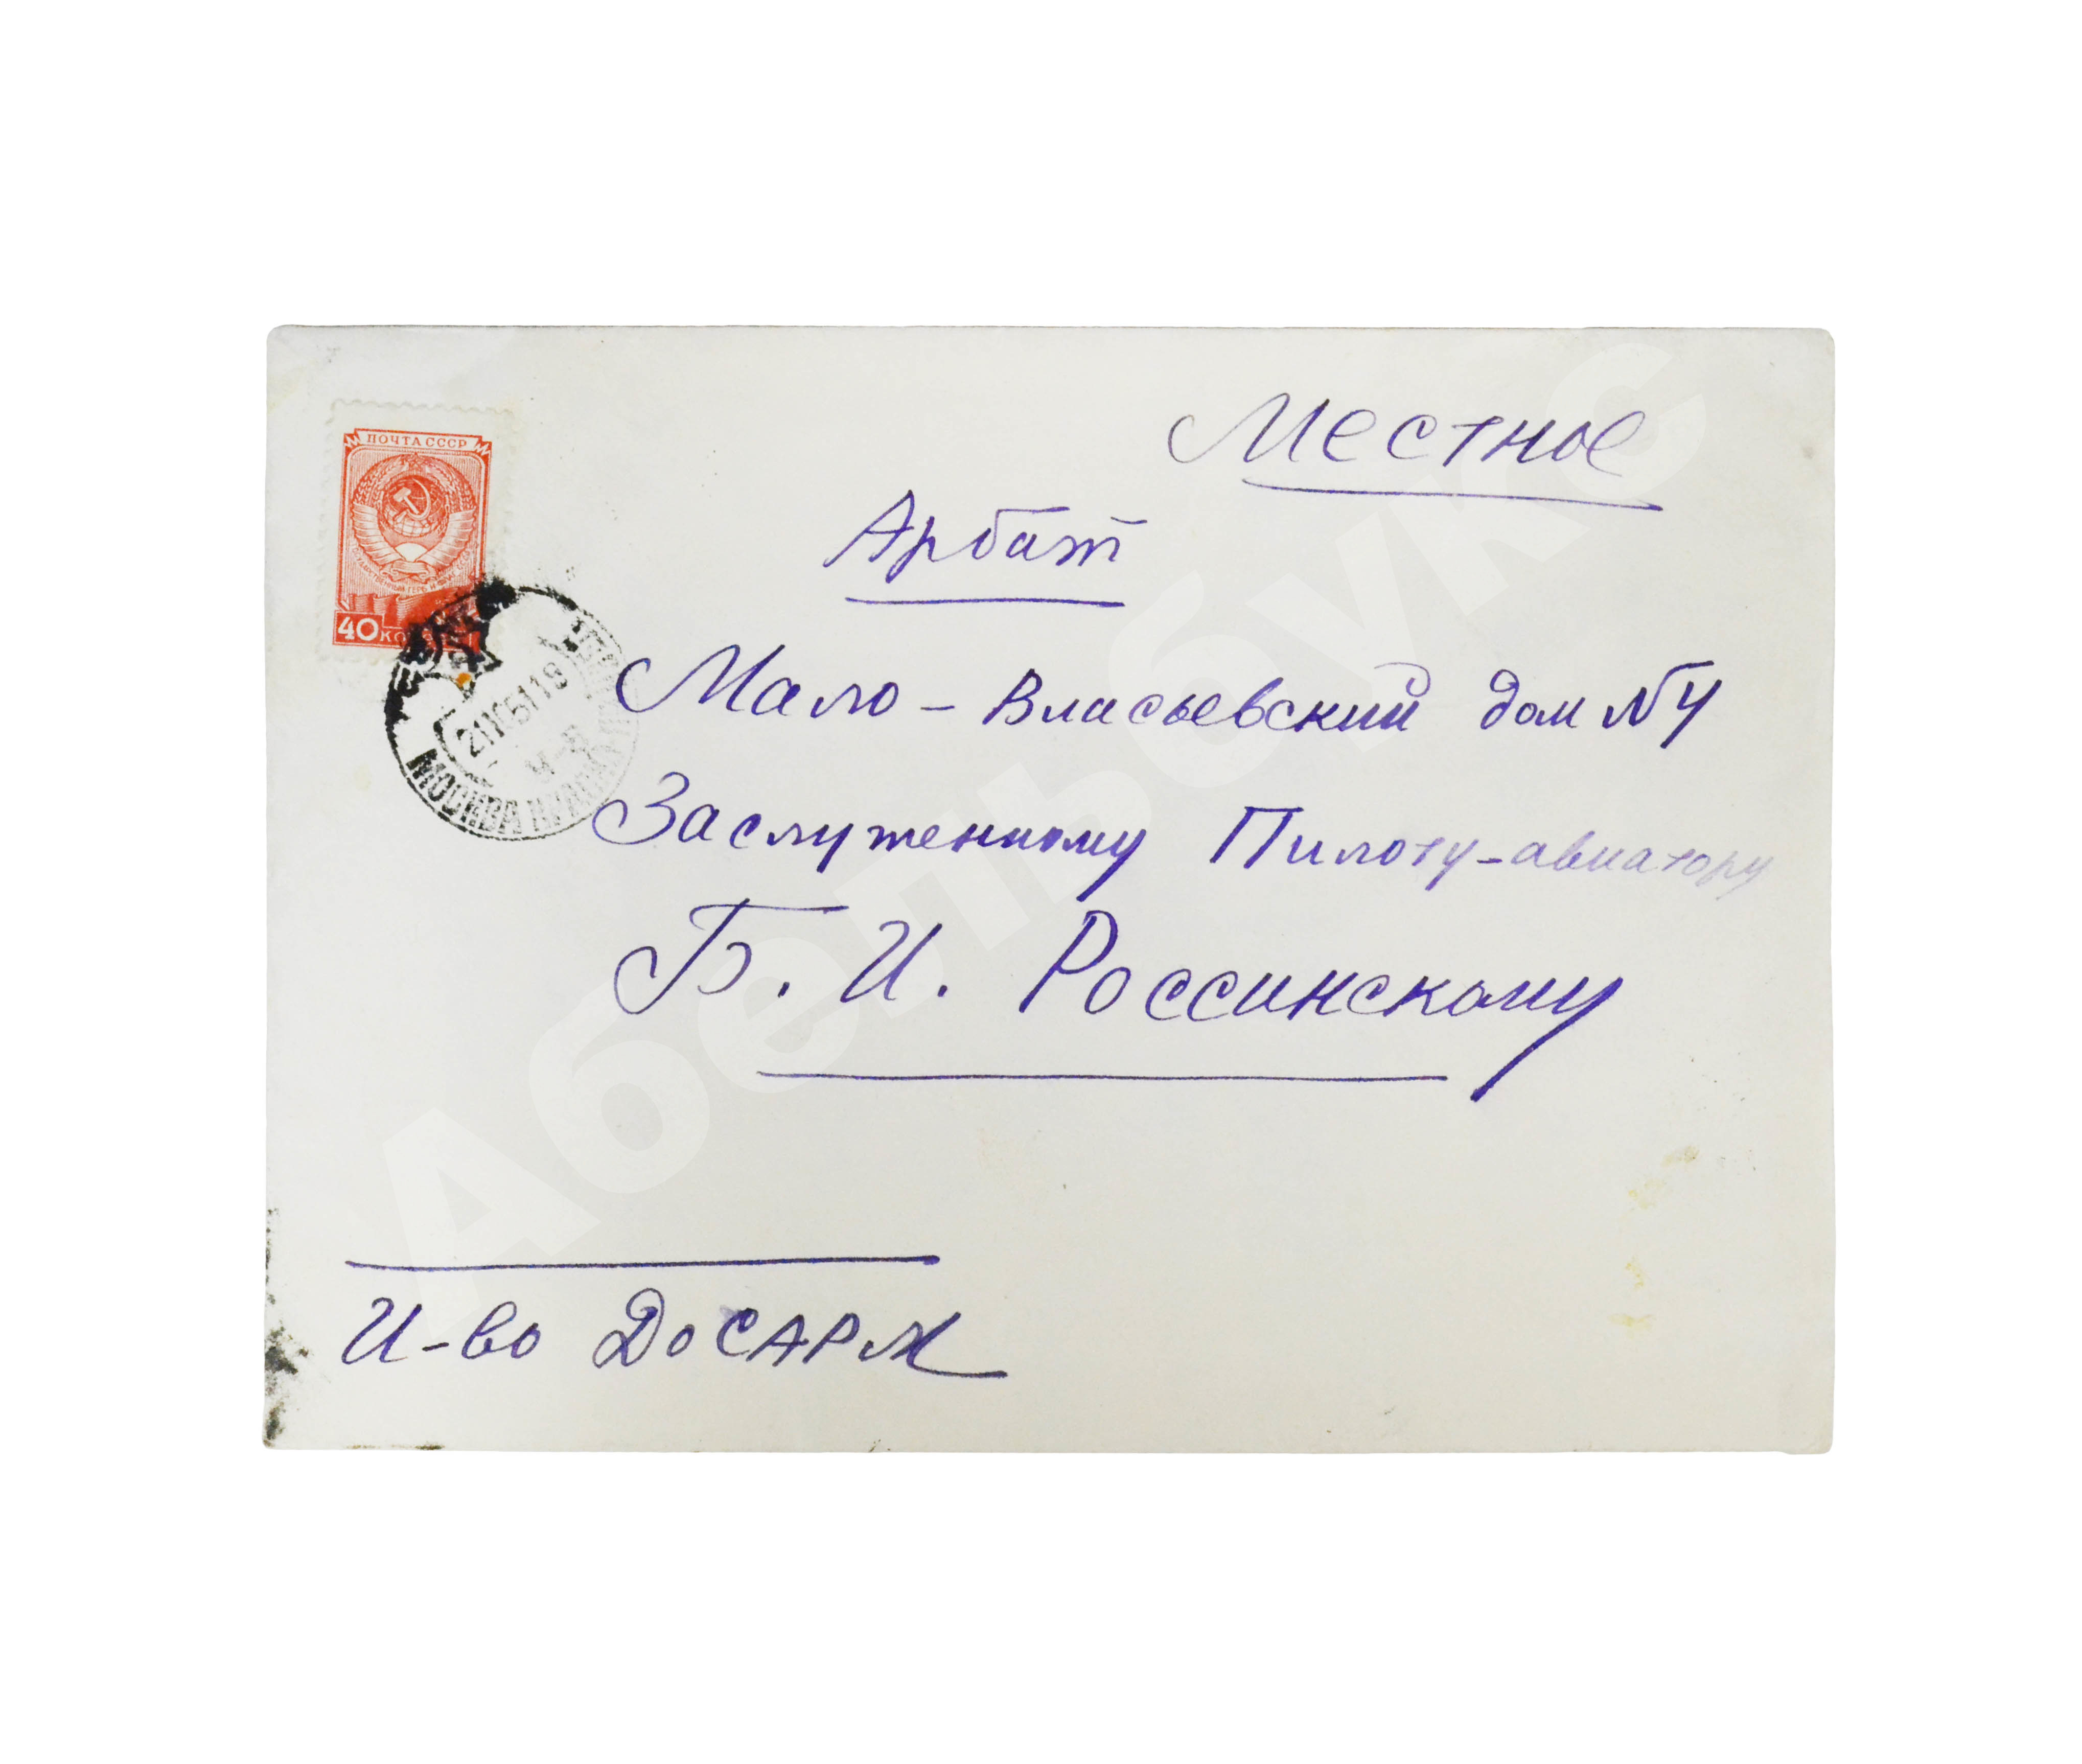 ПОЧТА СССР
40 КО
Местное
Арбат
Мало - Власьевский дом № 4
Заслуженному Пилоту-авиатору
Б. И. Россинскому
И-во ДОСАРМ
МОСКВА
Абельбукс